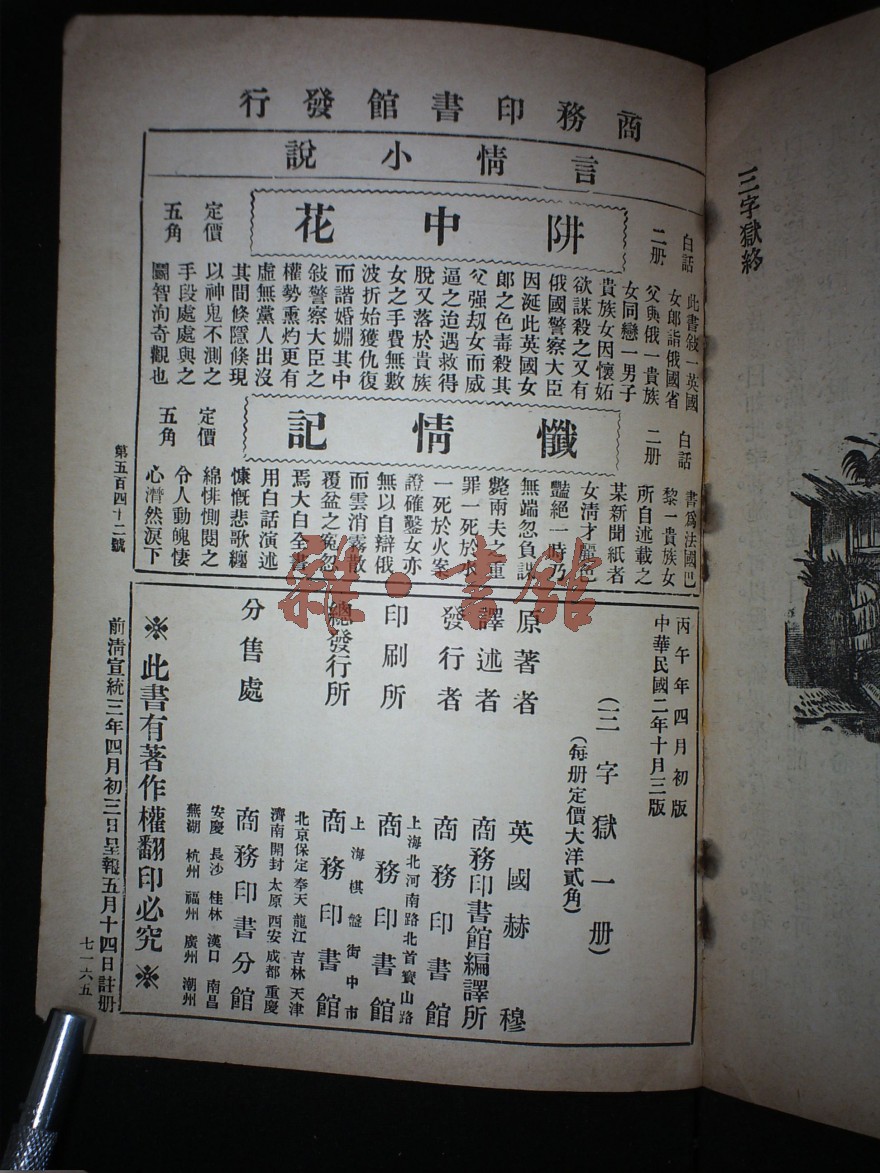 三字獄終
商務印書館發行
言情小說
阱中花
白話
二册
此書敍一英國
女郎詣俄國省
父與俄一貴族
女同戀一男子
貴族女因懷妬
欲謀殺之又有
俄國警察大臣
因涎此英國女
郎之色毒殺其
父强刼女而威
逼之迨遇救得
脫又落於貴族
女之手費無數
波折始獲仇復
而諧婚媚其中
敍警察大臣之
權勢熏灼更有
虛無黨人出沒
其間倏隱倏現
以神鬼不測之
手段處處與之
鬬智洵奇觀也
定價
五角
懺情記
白話
二册
書爲法國巴
黎一貴族女
所自述載之
某新聞紙者
女淸才麗色
豔絕一時乃
無端忽負謀
斃兩夫之重
罪一死於水
一死於火案
證確鑿女亦
無以自辯俄
而雲消霧散
覆盆之寃忽
焉大白全書
用白話演述
慷慨悲歌纏
綿悱惻閱之
令人動魄悽
心潸然淚下
定價
五角
第五百四十二號
丙午年四月初版
中華民國二年十月三版
(三字獄一册)
(每册定價大洋貳角)
原著者 英國赫穆
譯述者 商務印書館編譯所
發行者 商務印書館
上海北河南路北首寶山路
印刷所 商務印書館
上海棋盤街中市
總發行所 商務印書館
北京 保定 奉天 龍江 吉林 天津
濟南 開封 太原 西安 成都 重慶
分售處 商務印書分館
安慶 長沙 桂林 漢口 南昌
蕪湖 杭州 福州 廣州 潮州
※此書有著作權翻印必究※
前淸宣統三年四月初三日呈報五月十四日註册
七一六五
雜·書館